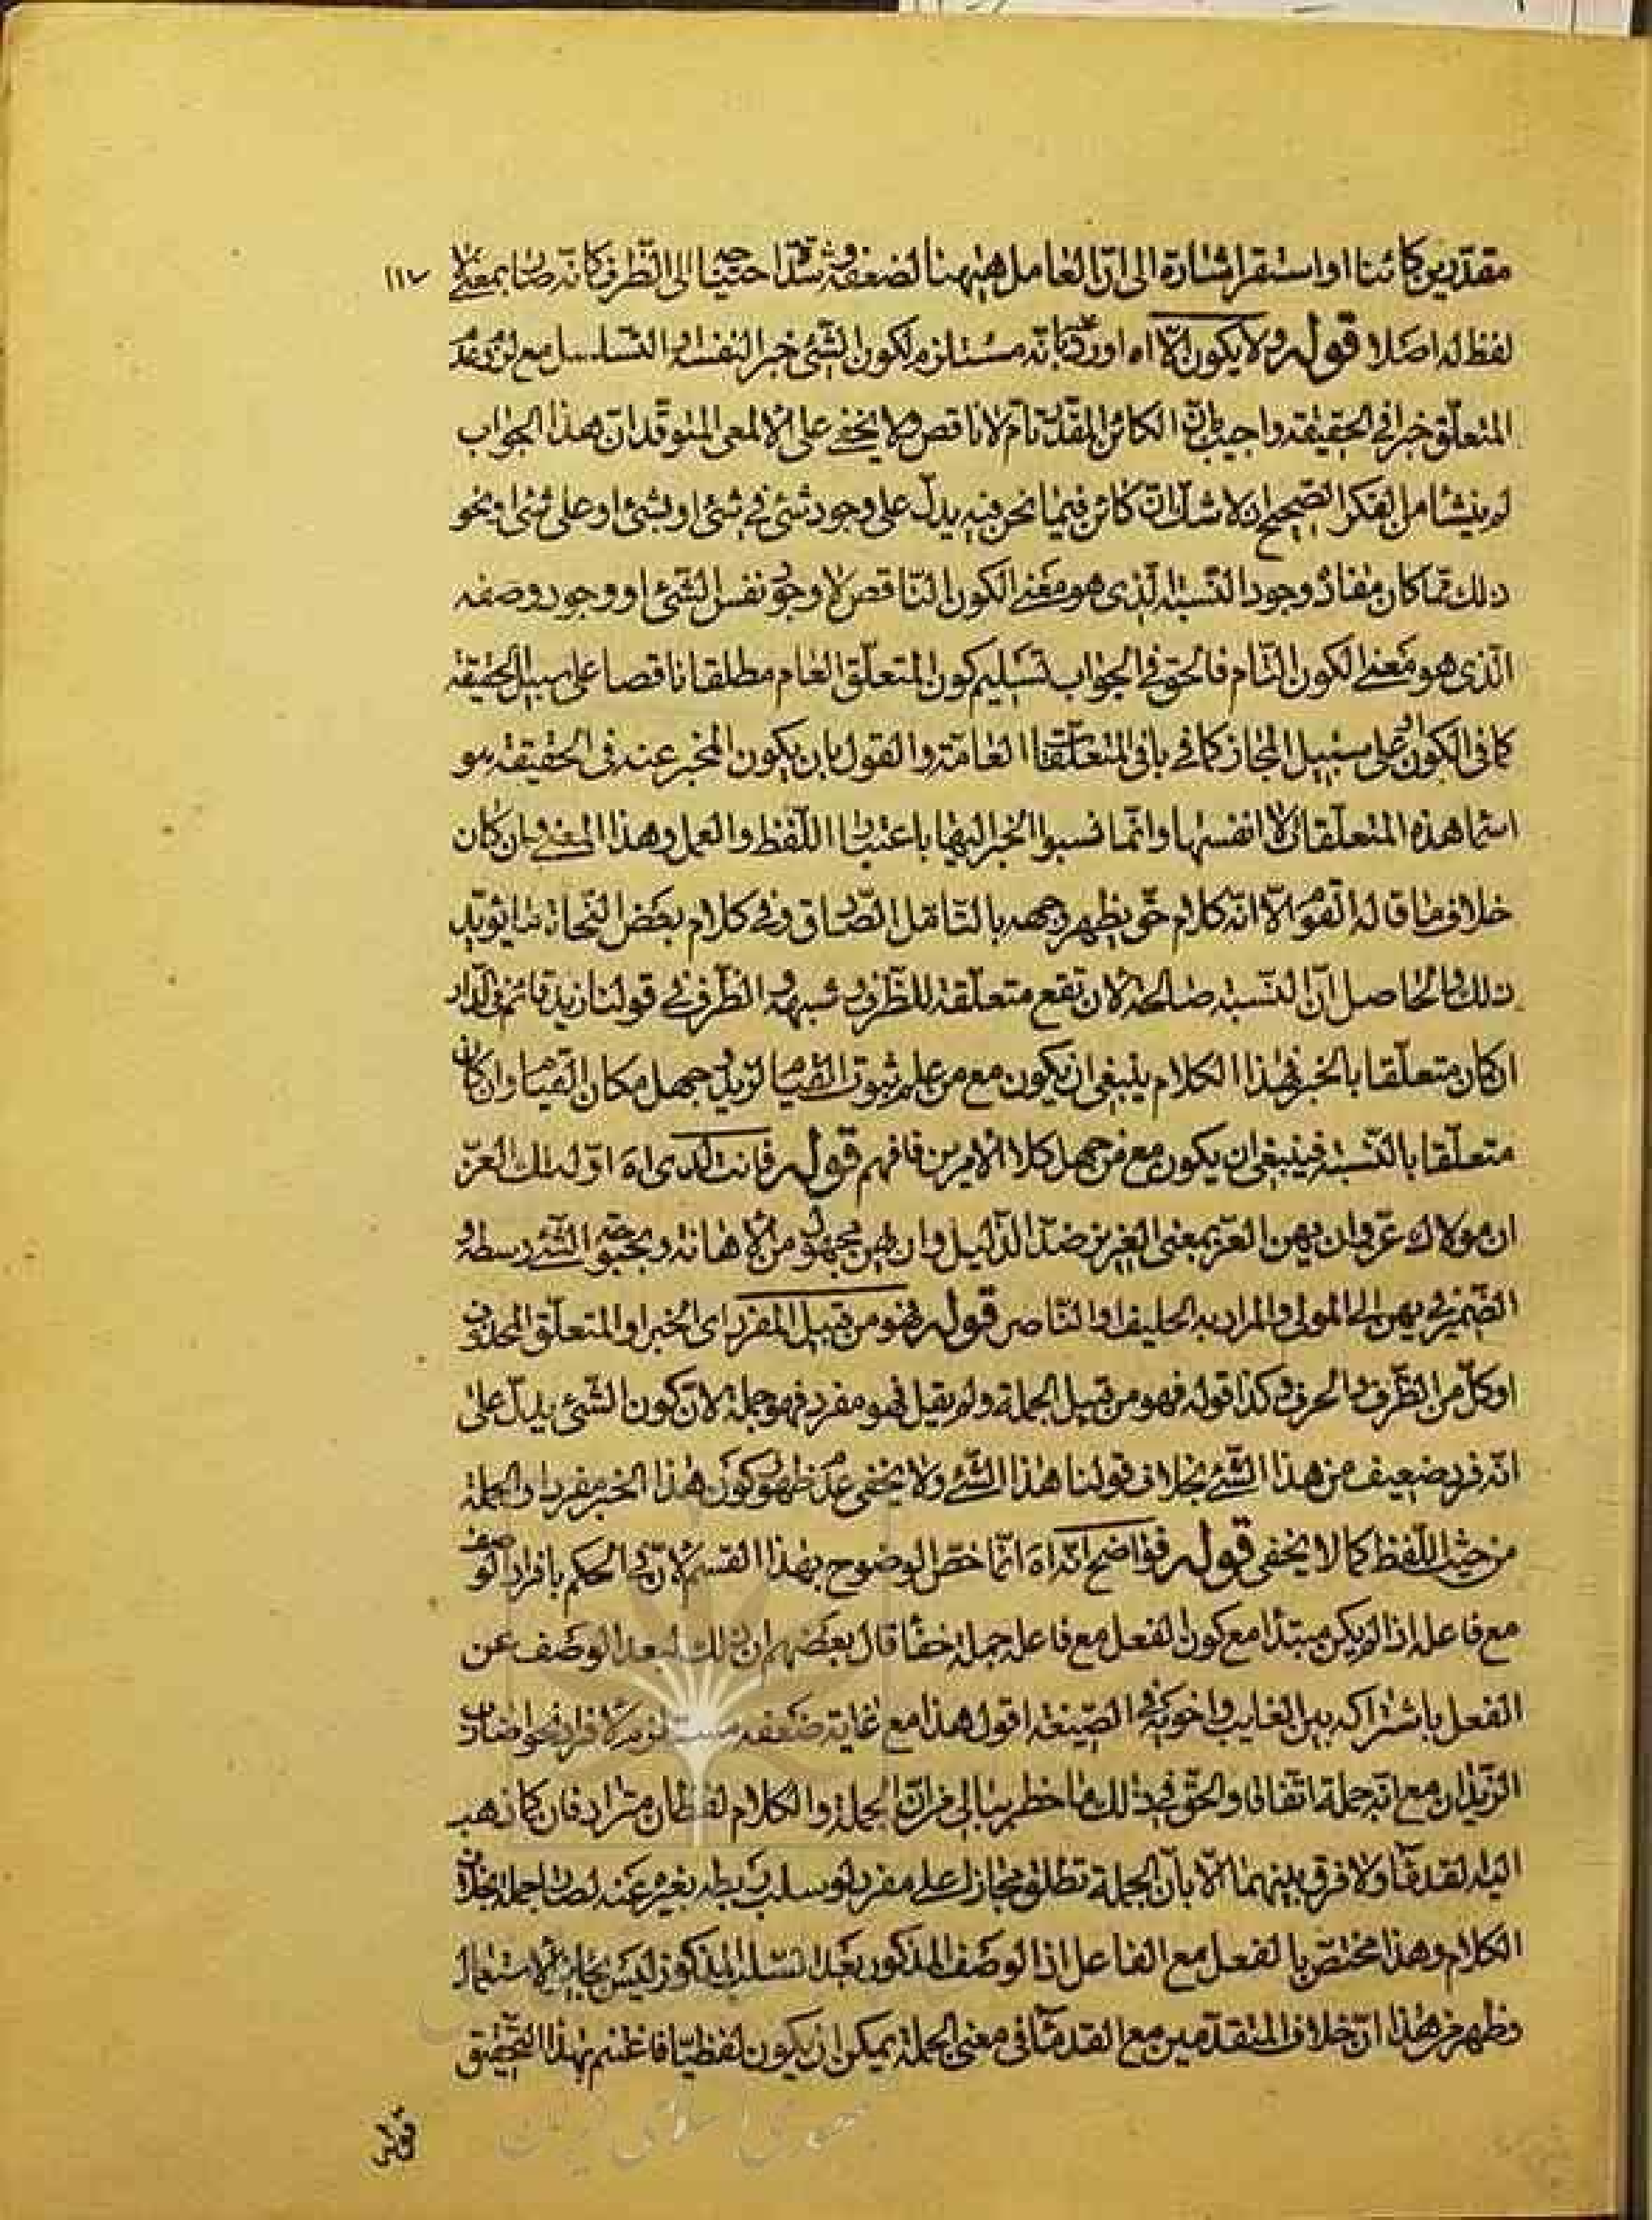 مقدرين كائنا او استقر اشارة الى ان العامل ههنا لضعفه وشدة احتياجه الى الظرف كانه صار بمعنى لا
١١٧
لفظ له اصلا قوله ولا يكون الا اه اورد عليه بانه مستلزم لكون الشئ خبرا لنفسه والتسلسل مع لزوم عد
المتعلق خبرا في الحقيقة واجيب بان الكائن المقدر تام لا ناقص ولا يخفى على الالمعى المتوقد ان هذا الجواب
لم ينشأ من الفكر الصحيح اذ لا شك ان كائن فيما نحن فيه يدل على وجود شئ في شئ او بشئ او على شئ او نحو
ذلك مما كان مفاده وجود النسبة الذى هو معنى الكون الناقص لا وجود نفس الشئ او وجود وصفه
الذى هو معنى الكون التام فالحق في الجواب تسليم كون المتعلق العام مطلقا ناقصا على سبيل الحقيقة
كما في الكون او على سبيل المجاز كما في باقي المتعلقات العامة والقول بان يكون المخبر عنه في الحقيقة هو
اسماء هذه المتعلقات لا انفسها وانما نسبوا الخبر اليها باعتبار اللفظ والعمل وهذا المعنى وان كان
خلاف ما قاله القوم الا انه كلام حق يظهر وجهه بالتامل الصادق وفي كلام بعض النحاة ما يؤيد
ذلك والحاصل ان النسبة صالحة لان تقع متعلقة للظرف وشبهه والظرف في قولنا زيد قائم في الدار
ان كان متعلقا بالخبر فهذا الكلام ينبغى ان يكون مع من علم ثبوت القيام لزيد وجهل مكان القيام وان كان
متعلقا بالنسبة فينبغى ان يكون مع من جهل كلا الامرين فافهم قوله فانت لدى اه اوله لك العز
ان مولاك عز وان يهن العز بمعنى العزيز ضد الذليل وان يهن مجهول من الاهانة وبحبوحة الشئ وسطه و
الضمير في يهن الى المولى والمراد به الحليف او الناصر قوله فهو من قبيل المفرد اى الخبر او المتعلق المحذوف
او كل من الظرف والحرف وكذا قوله فهو من قبيل الجملة ولم يقل فهو مفرد فهو جملة لان كون الشئ يدل على
انه فرد ضعيف من هذا الشئ بخلاف قولنا هذا الشئ ولا يخفى عدم ظهور كون هذا الخبر مفردا والجملة
من حيث اللفظ كما لا يخفى قوله فواضح انه اه انما خص الوضوح بهذا القسم لان في الحكم بافراد الوصف
مع فاعله اذا لم يكن مبتدا مع كون الفعل مع فاعله جملة خفاء قال بعضهم ان ذلك لبعد الوصف عن
الفعل باشتراكه بين الغايب واخويه في الصيغة اقول هذا مع غاية ضعفه مستلزم لافراد نحو اضارب
الزيدان مع انه جملة اتفاقا والحق في ذلك ما خطر ببالي من ان الجملة والكلام لفظان مترادفان كما ذهب
اليه القدماء ولا فرق بينهما الا بان الجملة تطلق مجازا على مفرد لو سلب ربطه بغيره عنه لصار جملة بخلاف
الكلام وهذا مختص بالفعل مع الفاعل اذ الوصف المذكور بعد السلب المذكور ليس بجايز الاستعمال
وظهر من هذا ان خلاف المتقدمين مع القدماء في معنى الجملة يمكن ان يكون لفظيا فاغتنم بهذا التحقيق